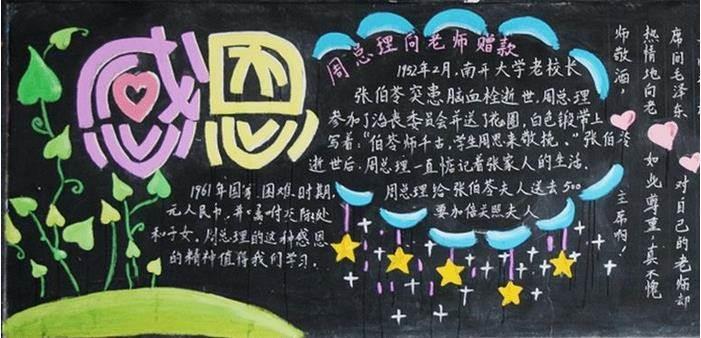 感恩
周总理向老师赠款
1952年2月,南开大学老校长
张伯苓突患脑血栓逝世,周总理
参加了治丧委员会并送了花圈,白色缎带上
写着:"伯苓师千古,学生周恩来敬挽。"张伯苓
逝世后,周总理一直惦记着张家人的生活。
周总理给张伯苓夫人送去500
要加倍关照夫人
1961年国家困难时期,
元人民币,并嘱付灾
和子女。周总理的这种感恩
的精神值得我们学习。
席间毛泽东
热情地向老
师敬酒,
对自己的老师却
如此尊重,真不愧
主席啊!